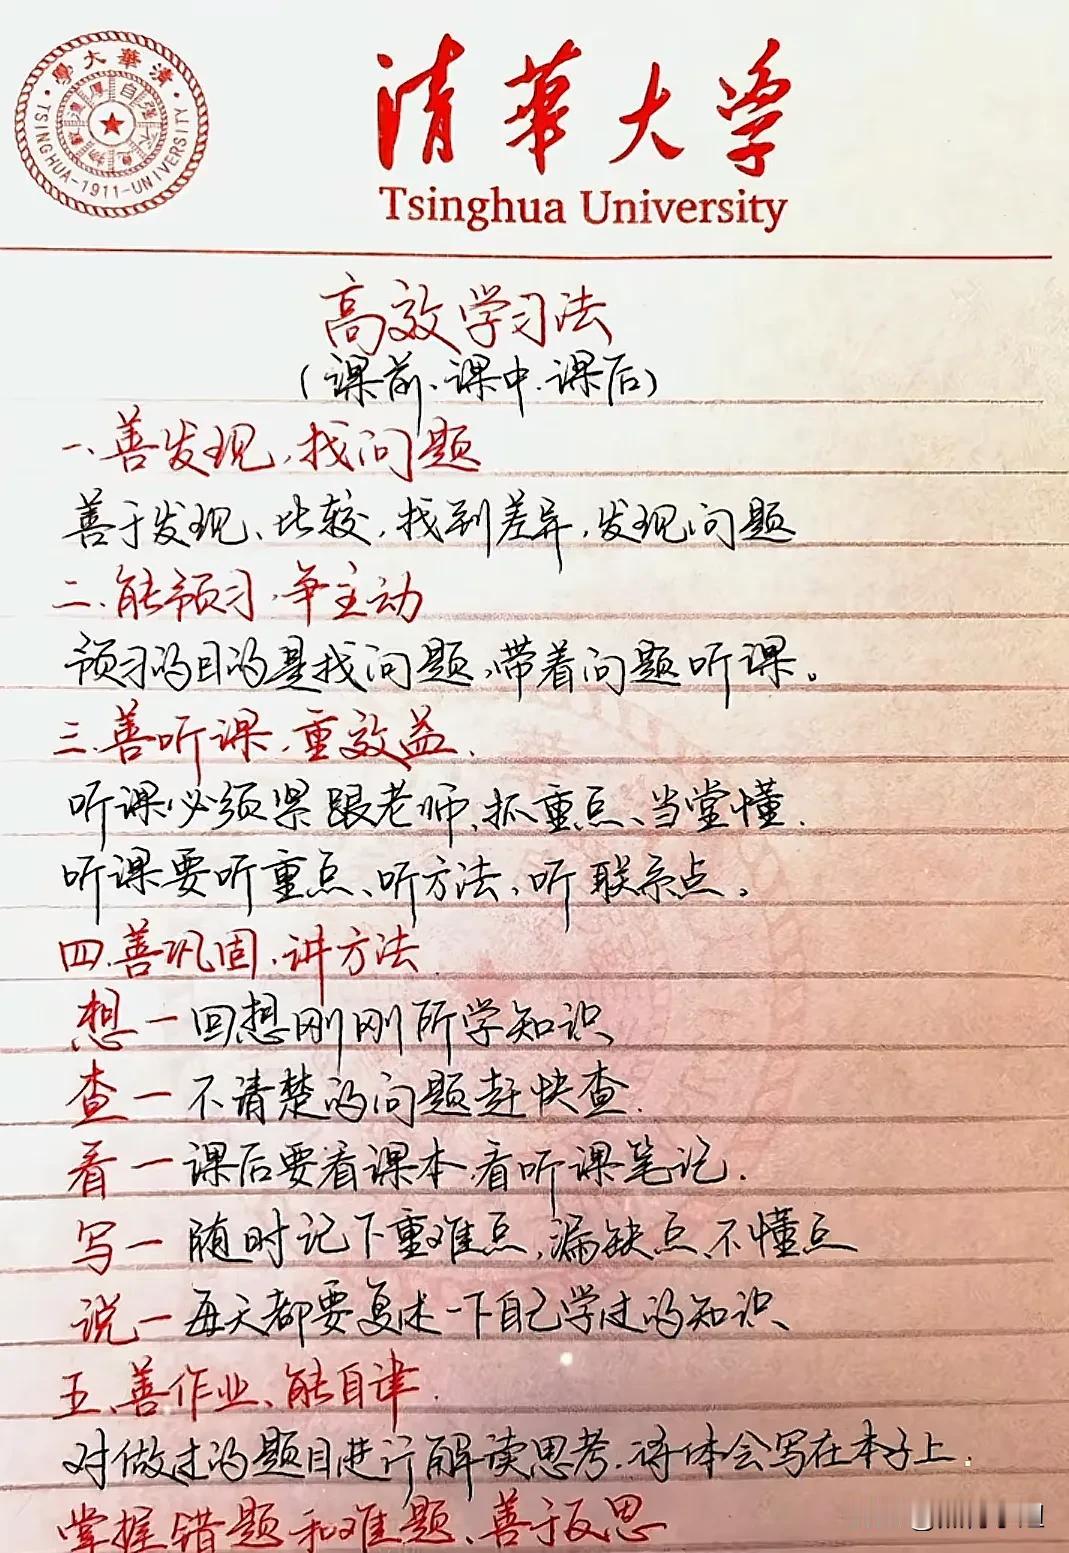 清華大學
·TSINGHUA-1911-UNIVERSITY·
自强不息
厚德載物
清華大学
Tsinghua University
高效学习法
(课前.课中.课后)
一、善发现,找问题
善于发现、比较,找到差异,发现问题
二.能预习,争主动
预习的目的是找问题,带着问题听课。
三.善听课,重效益.
听课必须紧跟老师、抓重点、当堂懂.
听课要听重点、听方法、听联系点。
四.善巩固.讲方法
想一回想刚刚所学知识
查一不清楚的问题赶快查.
看一课后要看课本,看听课笔记.
写一随时记下重难点,漏缺点,不懂点
说一每天都要复述一下自己学过的知识
五.善作业、能自律.
对做过的题目进行解读思考.将体会写在本子上.
掌握错题和难题、善于反思